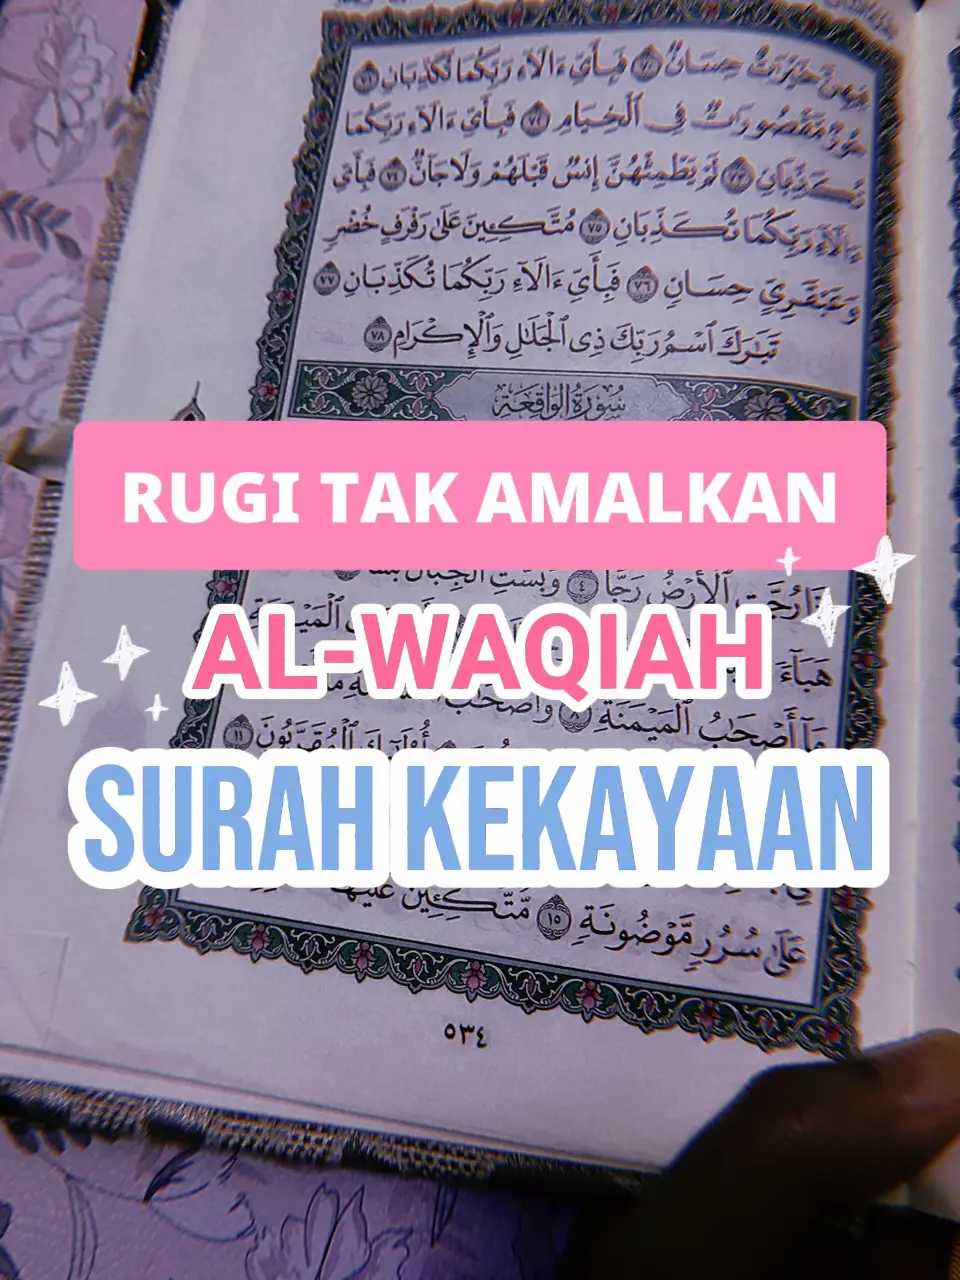 فِيهِنَّ خَيْرَٰتٌ حِسَانٌ ٧٠ فَبِأَىِّ ءَالَآءِ رَبِّكُمَا تُكَذِّبَانِ ٧١
حُورٌ مَّقْصُورَٰتٌ فِى ٱلْخِيَامِ ٧٢ فَبِأَىِّ ءَالَآءِ رَبِّكُمَا
تُكَذِّبَانِ ٧٣ لَمْ يَطْمِثْهُنَّ إِنسٌ قَبْلَهُمْ وَلَا جَآنٌّ ٧٤ فَبِأَىِّ
ءَالَآءِ رَبِّكُمَا تُكَذِّبَانِ ٧٥ مُتَّكِـِٔينَ عَلَىٰ رَفْرَفٍ خُضْرٍ
وَعَبْقَرِىٍّ حِسَانٍ ٧٦ فَبِأَىِّ ءَالَآءِ رَبِّكُمَا تُكَذِّبَانِ ٧٧
تَبَٰرَكَ ٱسْمُ رَبِّكَ ذِى ٱلْجَلَٰلِ وَٱلْإِكْرَامِ ٧٨
سُورَةُ الوَاقِعَة
RUGI TAK AMALKAN
رُجَّتِ ٱلْأَرْضُ رَجًّا ٤ وَبُسَّتِ ٱلْجِبَالُ بَسًّا
ٱلْمَيْمَنَةِ
AL-WAQIAH
هَبَآءً
مَآ أَصْحَٰبُ ٱلْمَيْمَنَةِ ٨ وَأَصْحَٰبُ
أُو۟لَٰٓئِكَ ٱلْمُقَرَّبُونَ ١١
SURAH KEKAYAAN
عَلَىٰ سُرُرٍ مَّوْضُونَةٍ ١٥ مُّتَّكِـِٔينَ عَلَيْهَا
٥٣٤